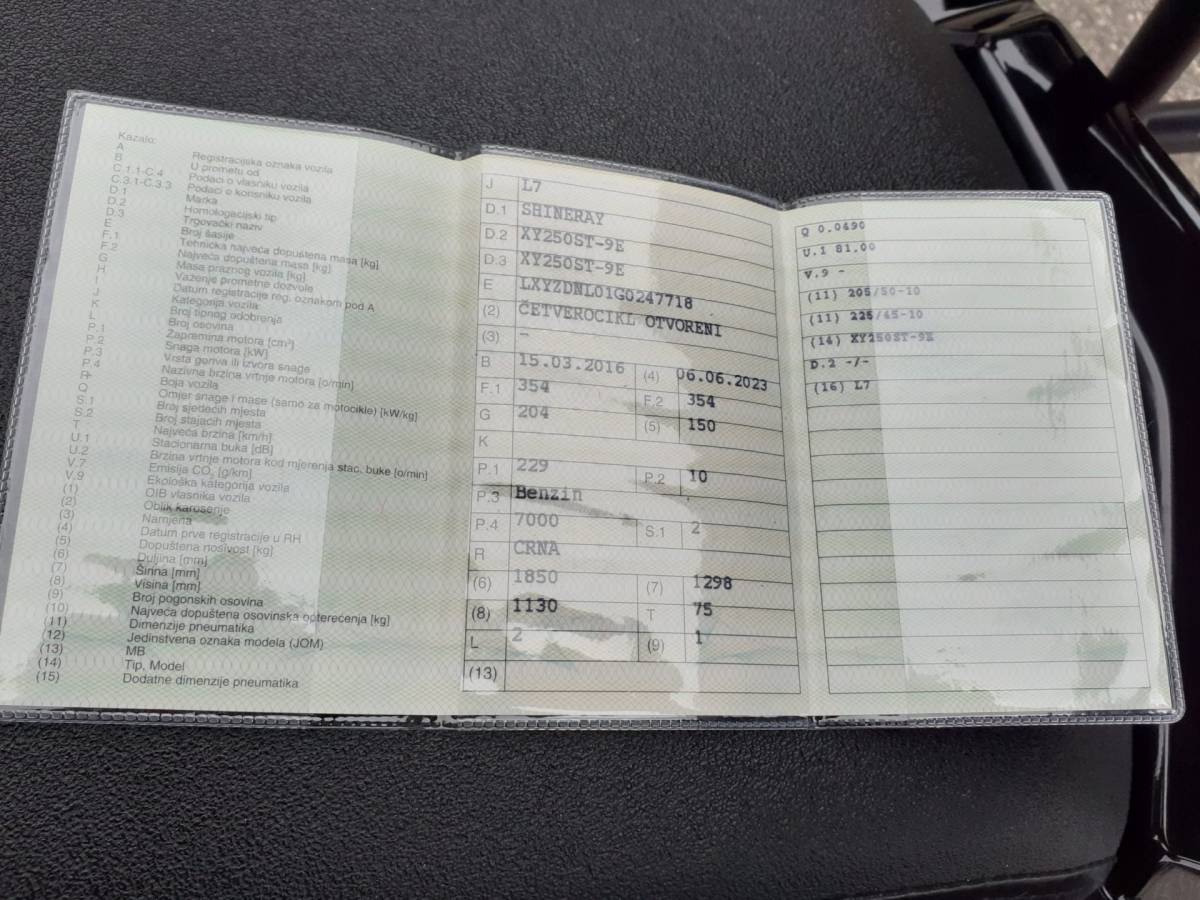 Kazalo:
A Registracijska oznaka vozila
B U prometu od
C.1.1-C.4 Podaci o vlasniku vozila
C.3.1-C.3.3 Podaci o korisniku vozila
D.1 Marka
D.2 Homologacijski tip
D.3 Trgovački naziv
E Broj šasije
F.1 Tehnička najveća dopuštena masa [kg]
F.2 Najveća dopuštena masa [kg]
G Masa praznog vozila [kg]
H Važenje prometne dozvole
I Datum registracije reg. oznakom pod A
J Kategorija vozila
K Broj tipnog odobrenja
L Broj osovina
P.1 Zapremina motora [cm³]
P.2 Snaga motora [kW]
P.3 Vrsta goriva ili izvora snage
P.4 Nazivna brzina vrtnje motora [o/min]
R Boja vozila
Q Omjer snage i mase (samo za motocikle) [kW/kg]
S.1 Broj sjedećih mjesta
S.2 Broj stajaćih mjesta
T Najveća brzina [km/h]
U.1 Stacionarna buka [dB]
U.2 Brzina vrtnje motora kod mjerenja stac. buke [o/min]
V.7 Emisija CO₂ [g/km]
V.9 Ekološka kategorija vozila
(1) OIB vlasnika vozila
(2) Oblik karoserije
(3) Namjena
(4) Datum prve registracije u RH
(5) Dopuštena nosivost [kg]
(6) Duljina [mm]
(7) Širina [mm]
(8) Visina [mm]
(9) Broj pogonskih osovina
(10) Najveća dopuštena osovinska opterećenja [kg]
(11) Dimenzije pneumatika
(12) Jedinstvena oznaka modela (JOM)
(13) MB
(14) Tip, Model
(15) Dodatne dimenzije pneumatika
J L7
D.1 SHINERAY
D.2 XY250ST-9E
D.3 XY250ST-9E
E LXYZDNL01G0247718
(2) ČETVEROCIKL OTVORENI
(3) –
B 15.03.2016 (4) 06.06.2023
F.1 354 F.2 354
G 204 (5) 150
K
P.1 229 P.2 10
P.3 Benzin
P.4 7000 S.1 2
R CRNA
(6) 1850 (7) 1298
(8) 1130 T 75
L 2 (9) 1
(13)
Q 0.0490
U.1 81.00
V.9 -
(11) 205/50-10
(11) 225/45-10
(14) XY250ST-9E
D.2 -/-
(16) L7